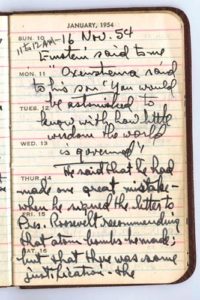 JANUARY, 1954
SUN 10
11 to 12 AM - 16 Nov. 54
Einstein said to me
MON. 11
Oxenstierna said
to his son: "You would
be astonished to
TUES. 12
know with how little
wisdom the world
WED. 13
is governed".
He said that he had
THUR 14
made one great mistake-
when he signed the letter to
FRI. 15
Pres. Roosevelt recommending
that atom bombs be made;
SAT. 16
but that there was some
justification - the